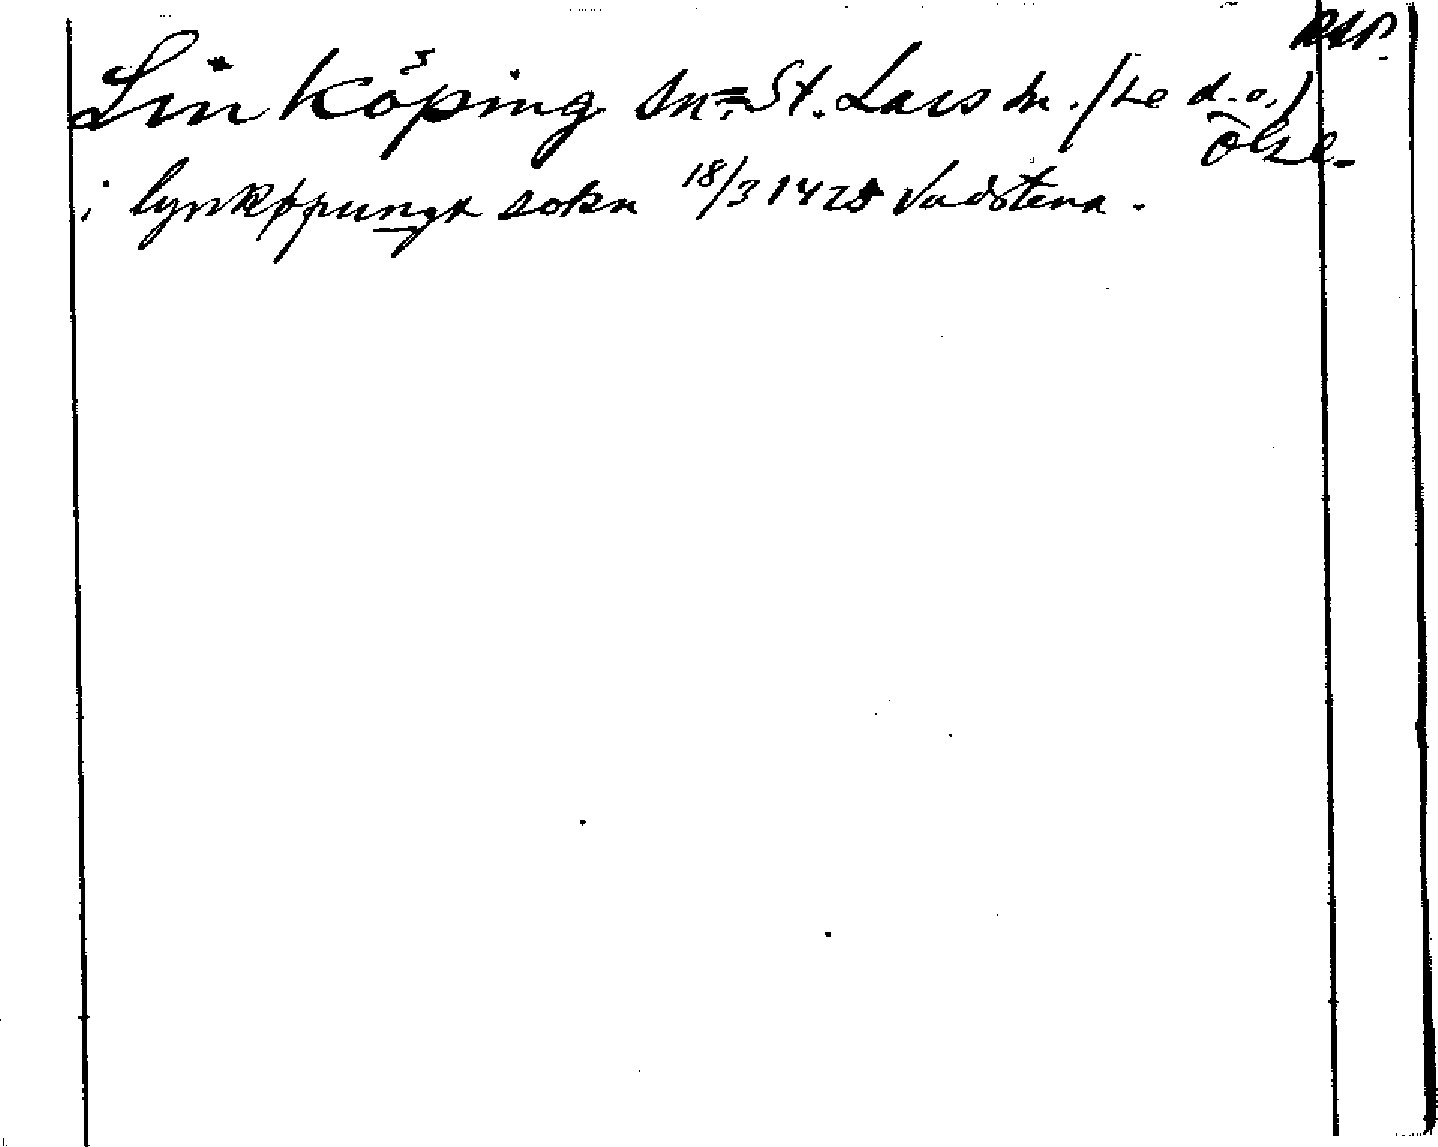 RAP.
Linköping sn = St. Lars sn. (se d.o.)
Ögtl.
i lynkøpungx sokn 18/3 1428 Vadstena.